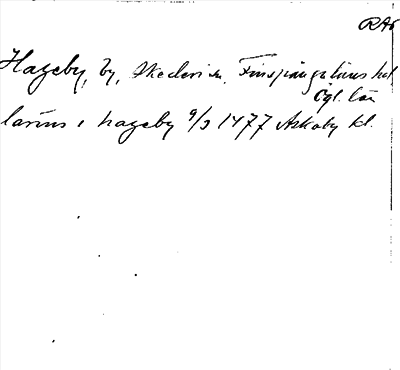 RAö
Hageby, by, Skedevi sn. Finspångaläns hd
Ögl. län
larens i hageby 9/3 1477 Askaby kl.